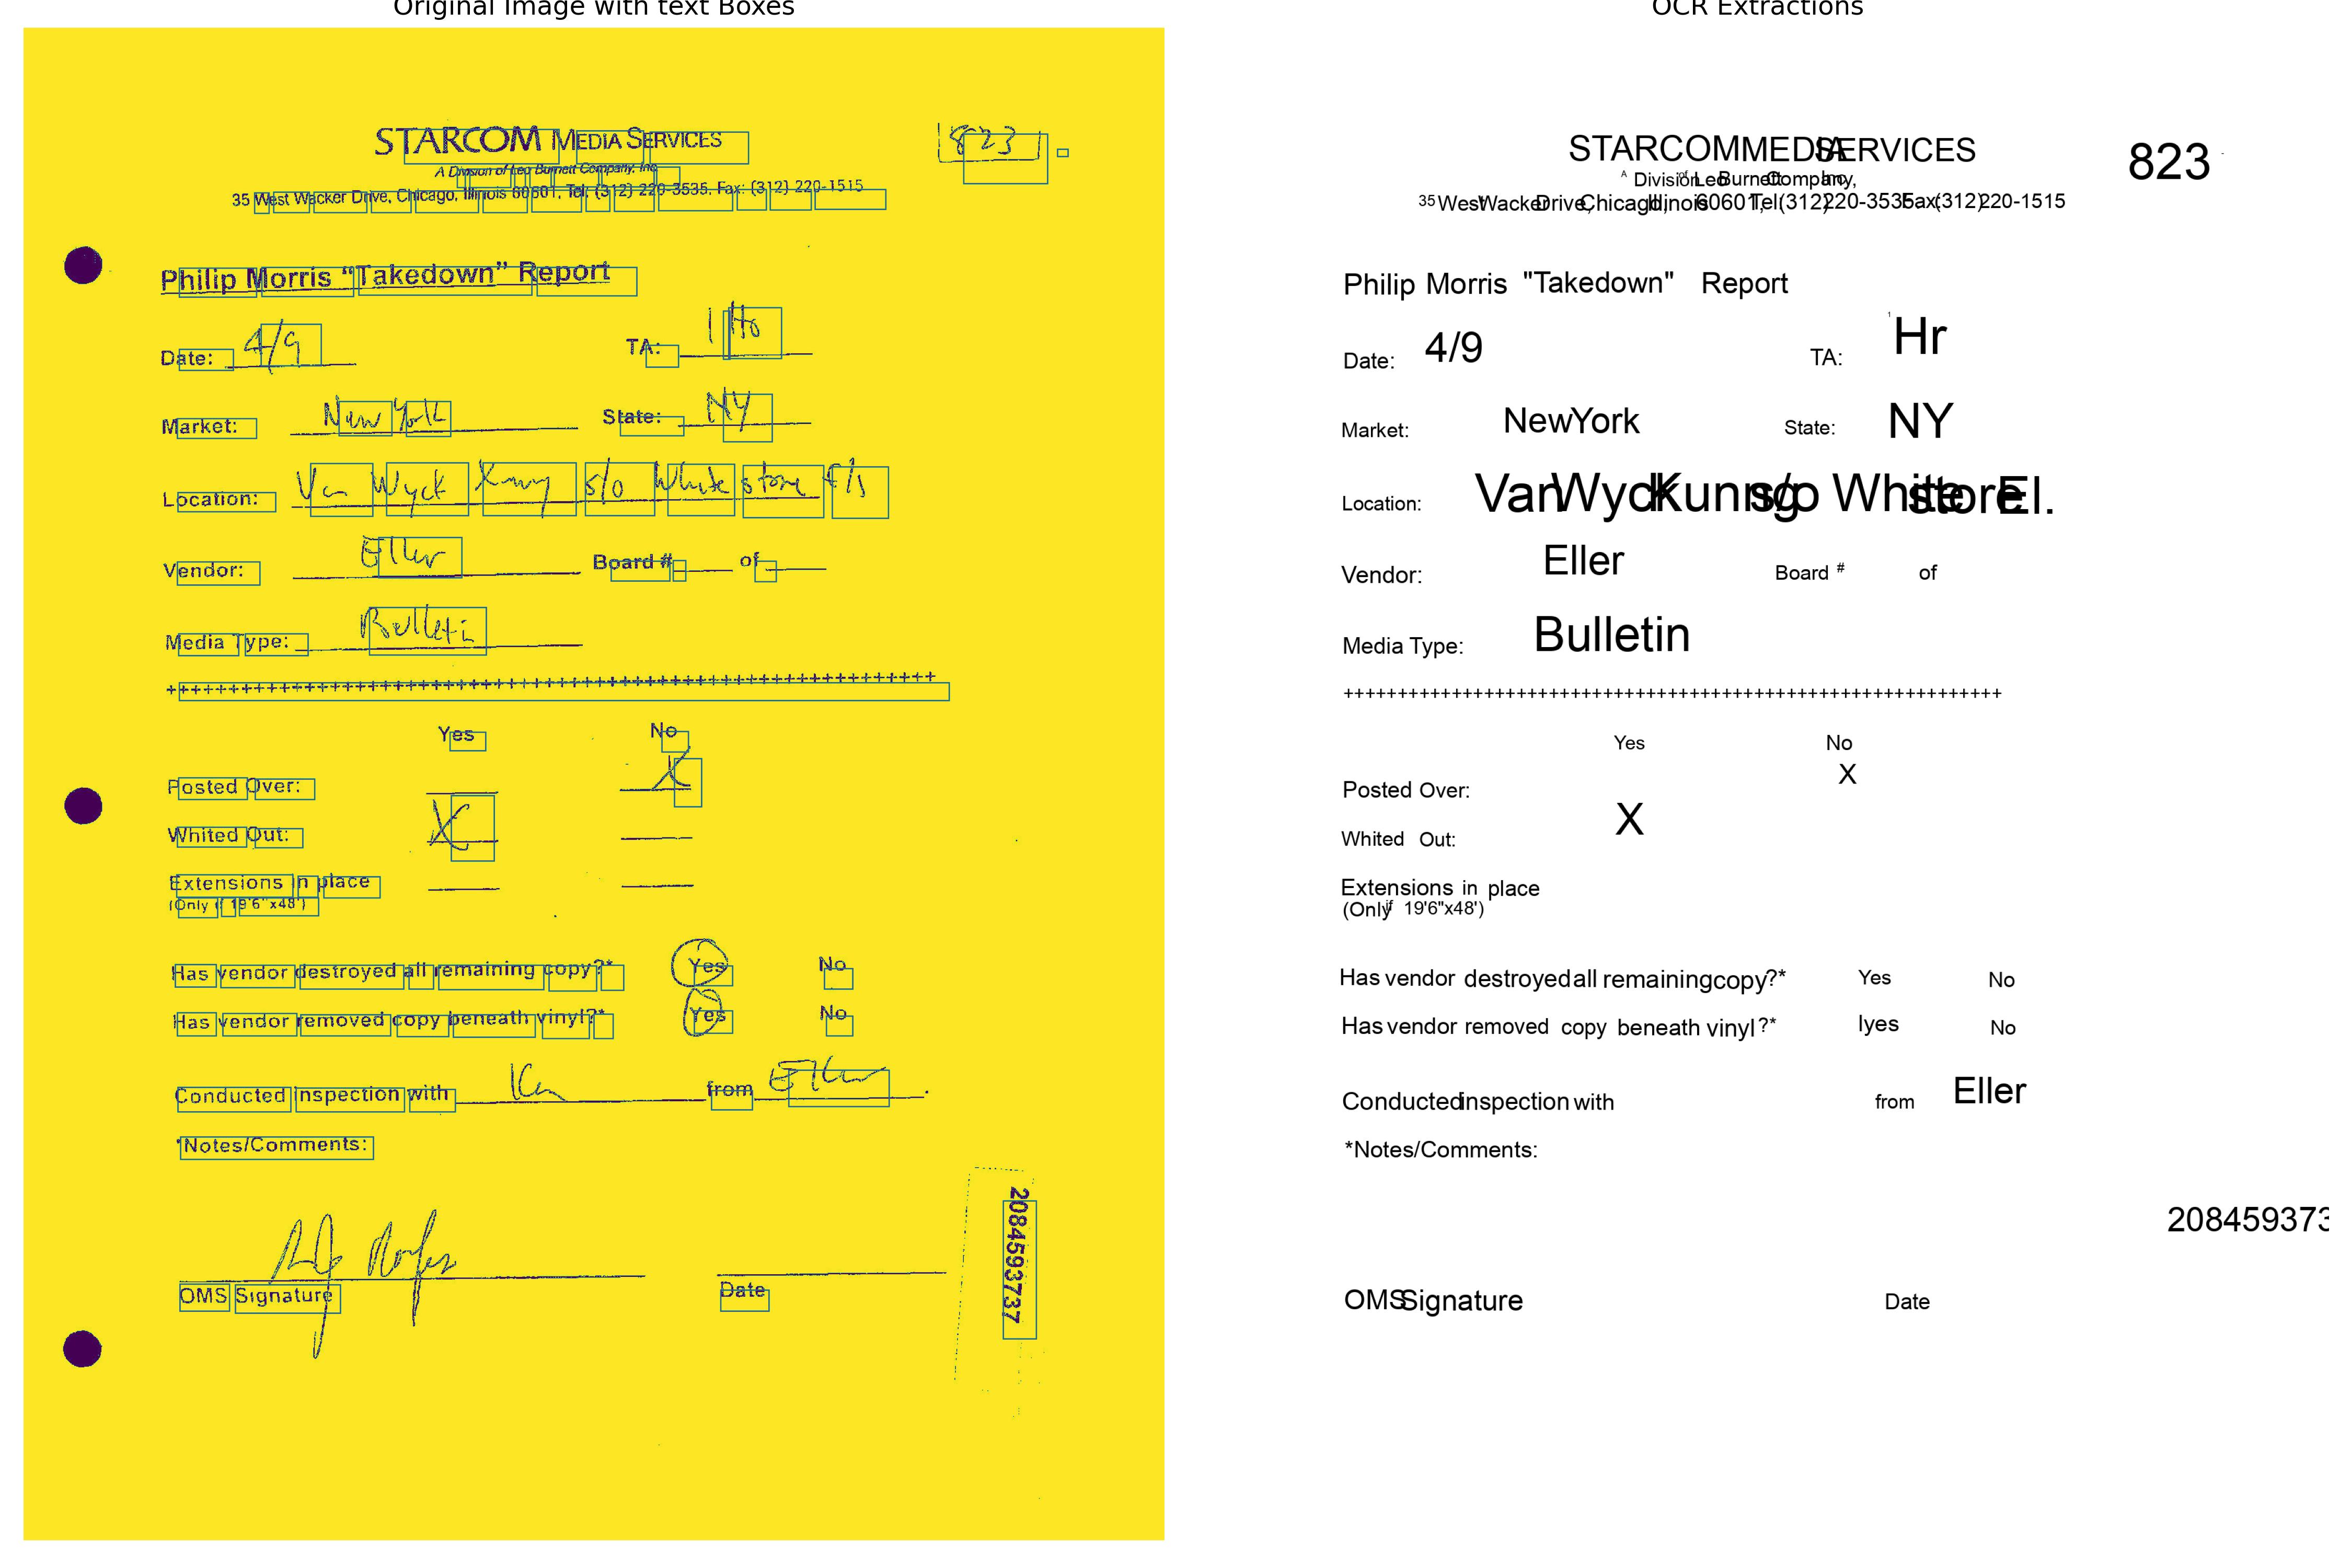 Original Image with text Boxes
STARCOM MEDIA SERVICES
A Division of Leo Burnett Company, Inc.
35 West Wacker Drive, Chicago, Illinois 60601, Tel: (312) 220-3535, Fax: (312) 220-1515
823
Philip Morris “Takedown” Report
Date: 4/9 TA:
Market: New York State: NY
Location: Van Wyck Xwy s/o White stone
Vendor: Eller Board # of
Media Type: Bulletin
Yes No
Posted Over: X
Whited Out: X
Extensions in place
(Only if 19'6"x48')
Has vendor destroyed all remaining copy?* Yes No
Has vendor removed copy beneath vinyl?* Yes No
Conducted inspection with from Eller
*Notes/Comments:
OMS Signature Date
2084593737
OCR Extractions
STARCOMMEDIA SERVICES
823
A Division of Leo Burnett Company, Inc.
35 West Wacker Drive, Chicago, Illinois 60601, Tel: (312) 220-3535, Fax: (312) 220-1515
Philip Morris "Takedown" Report
Date: 4/9 TA: Hr
Market: NewYork State: NY
Location: Van Wyck Kunng s/o White store El.
Vendor: Eller Board # of
Media Type: Bulletin
Yes No
X
Posted Over:
X
Whited Out:
Extensions in place
(Only if 19'6"x48')
Has vendor destroyed all remaining copy?* Yes No
Has vendor removed copy beneath vinyl?* lyes No
Conducted inspection with from Eller
*Notes/Comments:
208459373
OMS Signature Date